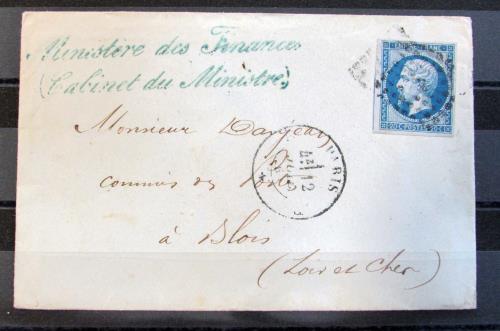 Ministère des Finances
(Cabinet du Ministre)
EMPIRE FRANC
20 C POSTES 20 C
Monsieur
PARIS
12
commis de
à Blois
(Loir et Cher)